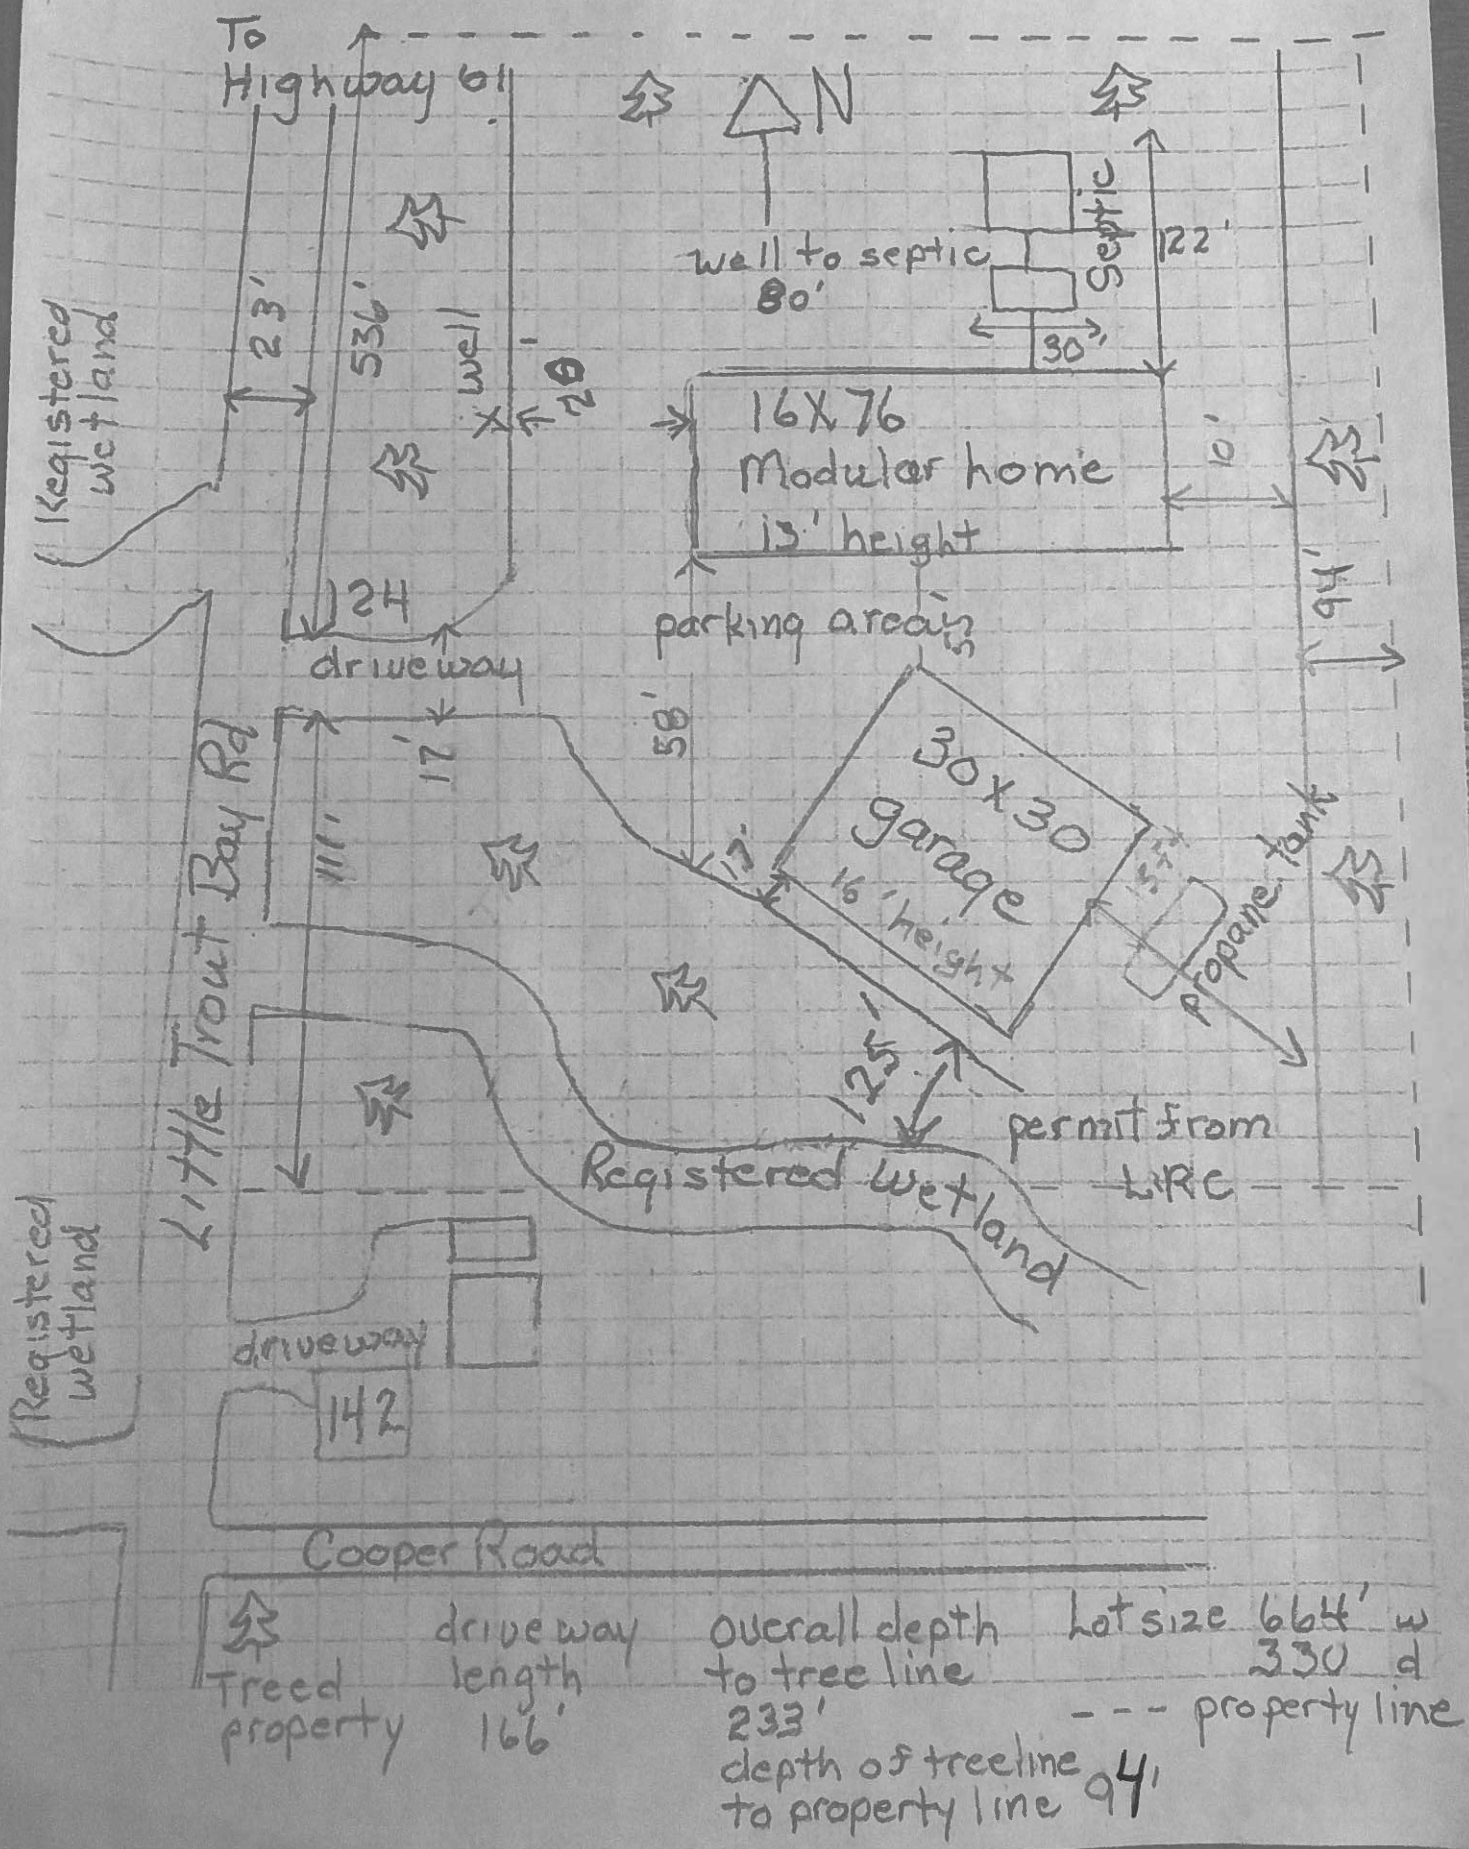 To
Highway 61
N
Septic
122'
well to septic
80'
30''
23'
536'
well
X
20
Registered
wetland
16X76
Modular home
13' height
10'
94'
124
driveway
parking area
58'
17'
111'
Little Trout Bay Rd
30x30
garage
16' height
17'
15ft
propane tank
125'
permit from
LRC
Registered wetland
Registered
wetland
driveway
142
Cooper Road
Treed
property
driveway
length
166'
overall depth
to tree line
233'
depth of treeline
to property line 94'
Lot size 664' w
330 d
--- property line